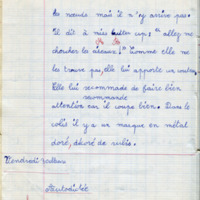 les nœuds mais il n'y arrive pas.
Il dit à miss : "allez me
chercher les ciseaux !" Comme elle ne
les trouve pas, elle lui apporte un couteau.
Elle lui recommande de faire bien
attention car il coupe bien. Dans le
colis il y a un masque en métal
doré, décoré de rubis.
Vendredi